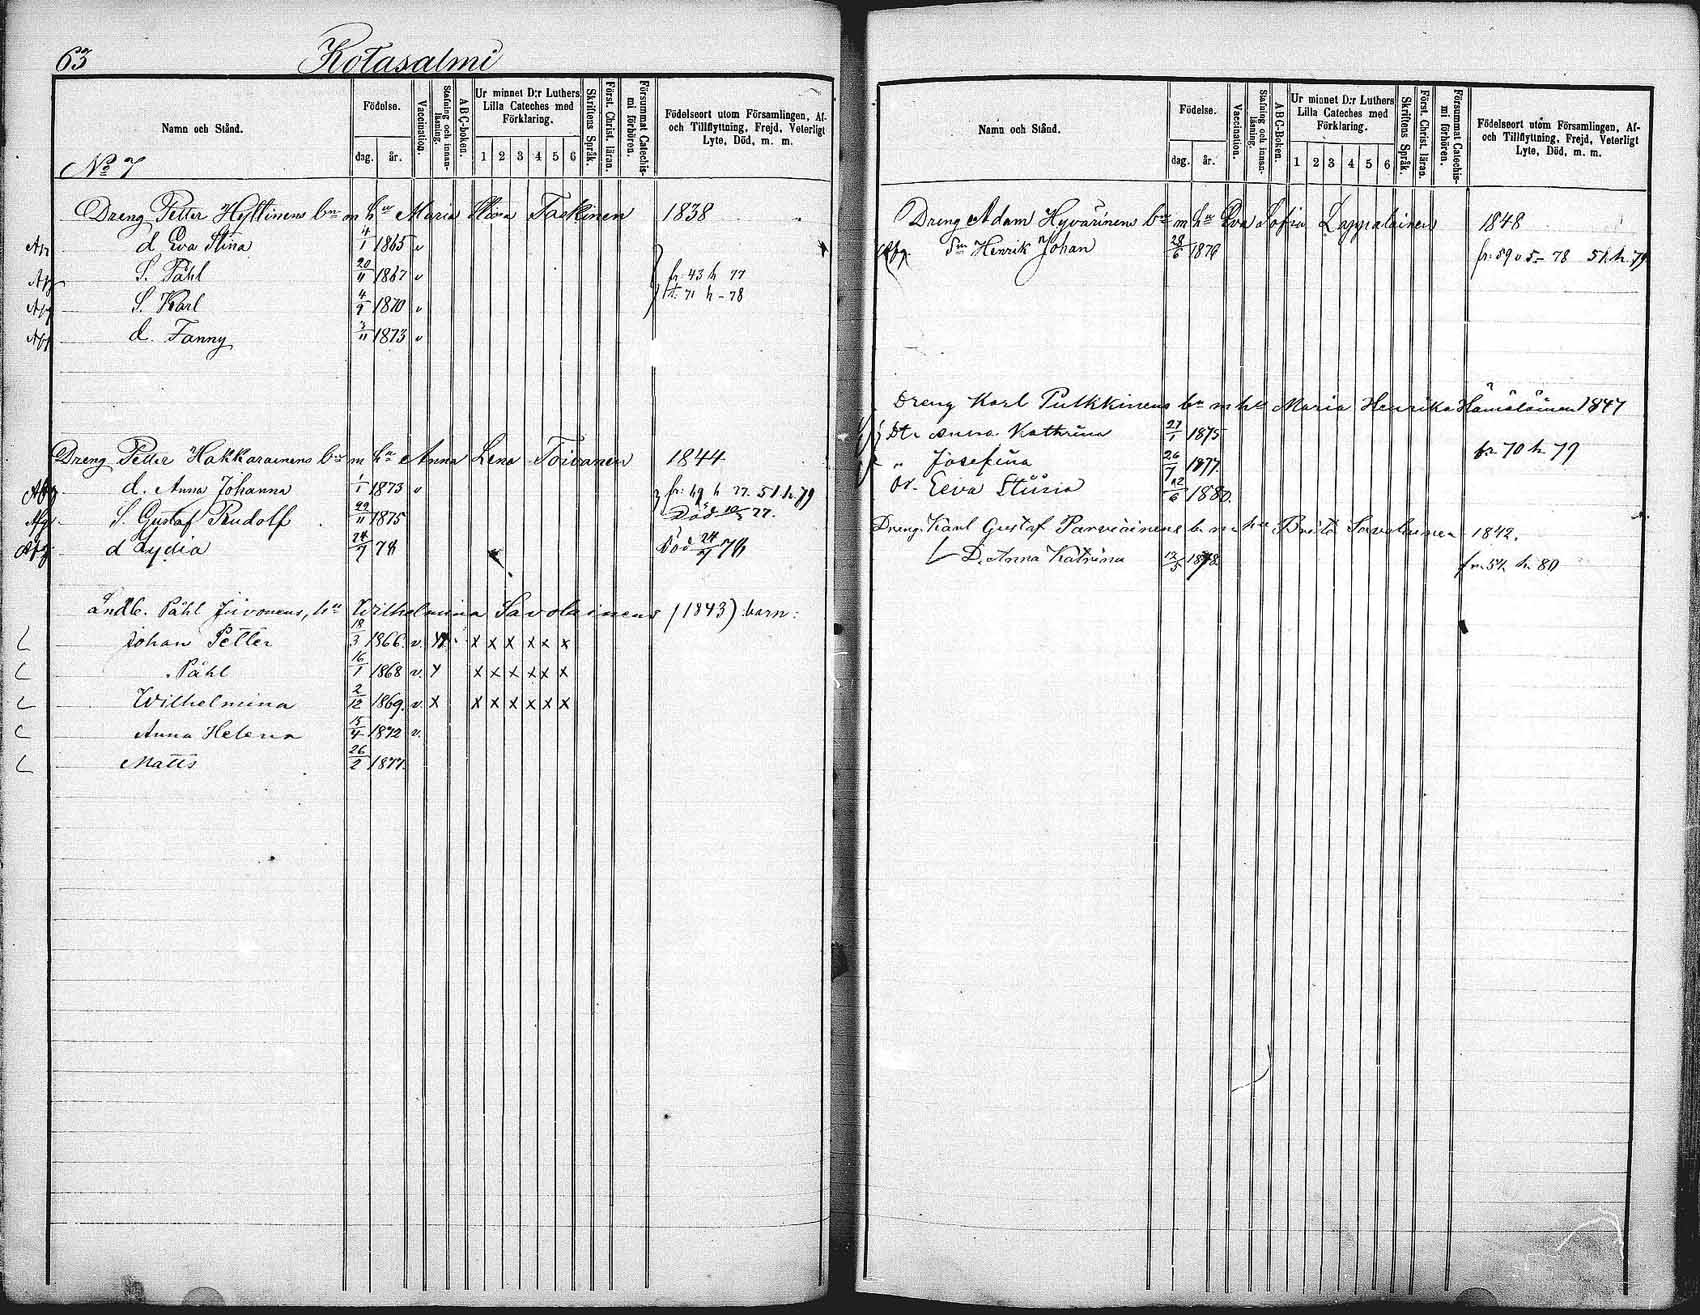 63 Kotasalmi
Namn och Stånd.
Födelse.
dag. år.
Vaccination.
Stafning och innan-läsning.
ABC-boken.
Ur minnet D:r Luthers Lilla Cateches med Förklaring.
1 2 3 4 5 6
Skriftens Språk.
Först. Christ. läran.
Försummat Catechis-mi förhören.
Födelseort utom Församlingen, Af-
och Tillflyttning, Frejd, Veterligt
Lyte, Död, m. m.
No 7
Dreng Petter Hyttinens bn m hu Maria Taskinen 1838
d. Eva Stina 4/1 1865 v
S. Påhl 20/11 1867 v fr. 43 h 77
S. Karl 4/9 1870 v t. 71 h - 78
d. Fanny 3/11 1873 v
Dreng Petter Hakkarainens bn m hu Anna Lena Toivanen 1844
Afg d. Anna Johanna 1/1 1873 v fr. 49 h 77. 51 h. 79
Afg S. Gustaf Rudolf 22/11 1875 Död 77.
Afg d Lydia 24/7 78 Död 24/7 78
Påhl Jivonens, hu Wilhelmina Savolainens (1843) barn:
Johan Petter 18/3 1866. v. x x x x x x
Påhl 16/1 1868 v. x x x x x x
Wilhelmina 2/12 1869. v. x x x x x x x
Anna Helena 15/4 1872 v.
Matts 26/2 1877.
Namn och Stånd.
Födelse.
dag. år.
Vaccination.
Stafning och innan-läsning.
ABC-Boken.
Ur minnet D:r Luthers Lilla Cateches med Förklaring.
1 2 3 4 5 6
Skriftens Språk.
Först. Christ. läran.
Försummat Catechis-mi förhören.
Födelseort utom Församlingen, Af-
och Tillflyttning, Frejd, Veterligt
Lyte, Död, m. m.
Dreng Adam Hyvärinens bn m hu Eva Sofia Lappalainen 1848
Afg. Sn Henrik Johan 28/6 1876 fr. 59 78 51 h. 79
Dreng Karl Pulkkinens bn m hu Maria Henrika Hämäläinen 1847
Dt. Anna Kathrina 27/1 1875
" Josefina 26/7 1877. fr. 70 h 79
Dr. Eeva Stiina 12/6 1880.
Dreng. Karl Gustaf Parviainens b. m. hu Brita Savolainen 1842.
D. Anna Katrina 12/5 1878 fr. 54 h. 80